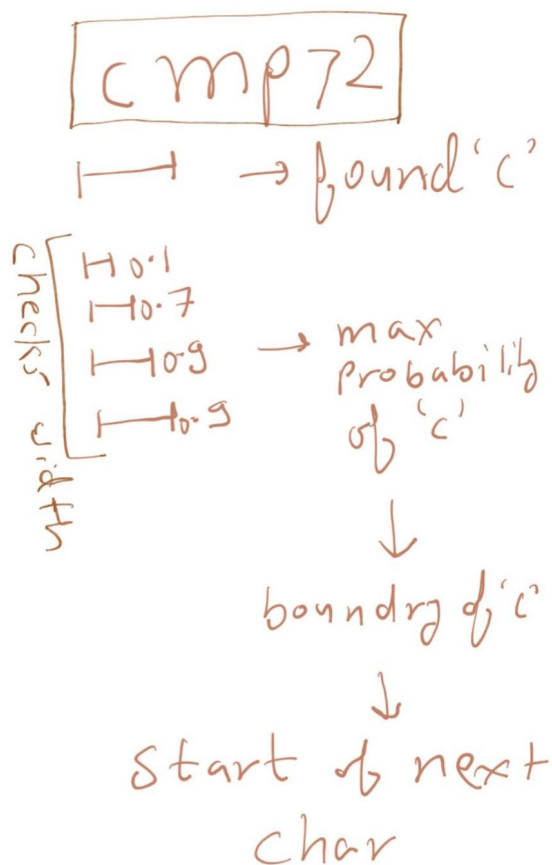 cmp72
→ found 'c'
checks width
0.1
0.7
0.9
0.9
→ max
probability
of 'c'
↓
boundry of 'c'
↓
start of next
char